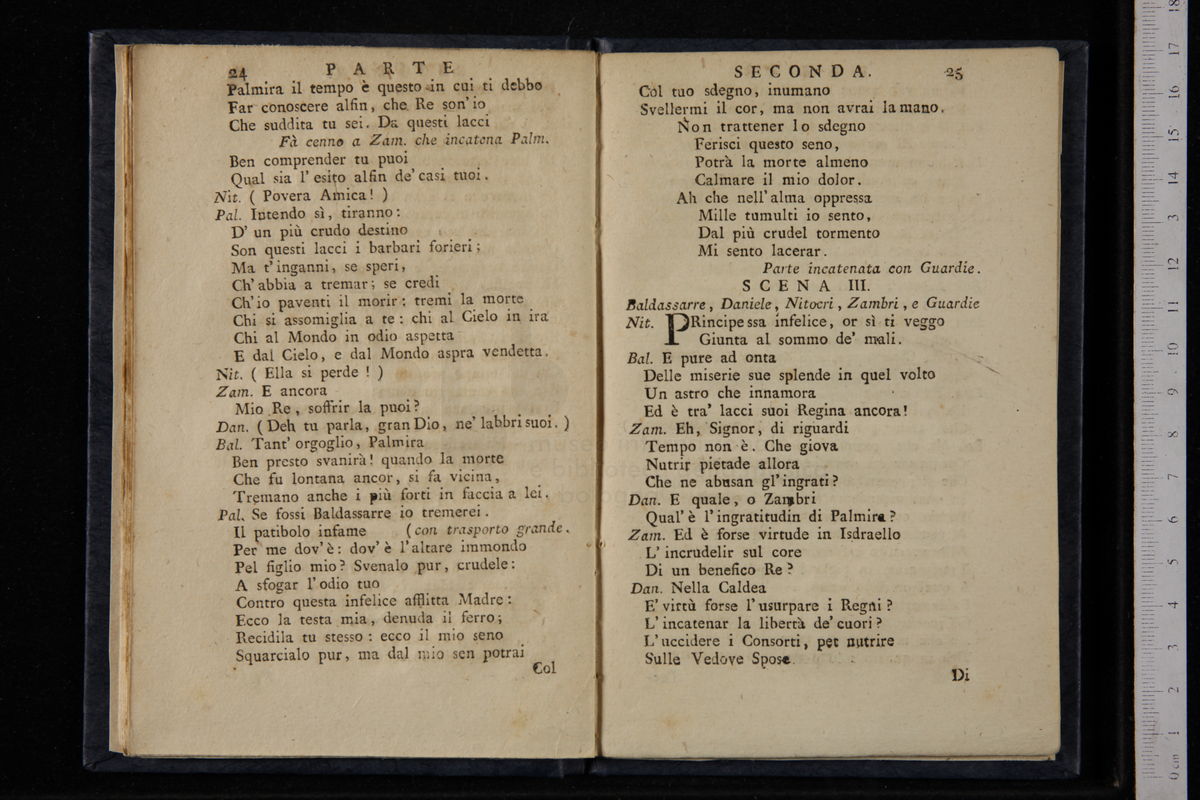 24 PARTE
Palmira il tempo è questo in cui ti debbo
Far conoscere alfin, che Re son' io
Che suddita tu sei. Da questi lacci
Fà cenno a Zam. che incatena Palm.
Ben comprender tu puoi
Qual sia l' esito alfin de' casi tuoi.
Nit. ( Povera Amica! )
Pal. Intendo sì, tiranno:
D' un più crudo destino
Son questi lacci i barbari forieri;
Ma t' inganni, se speri,
Ch' abbia a tremar; se credi
Ch' io paventi il morir: tremi la morte
Chi si assomiglia a te: chi al Cielo in ira
Chi al Mondo in odio aspetta
E dal Cielo, e dal Mondo aspra vendetta.
Nit. ( Ella si perde ! )
Zam. E ancora
Mio Re, soffrir la puoi?
Dan. (Deh tu parla, gran Dio, ne' labbri suoi. )
Bal. Tant' orgoglio, Palmira
Ben presto svanirà! quando la morte
Che fu lontana ancor, si fa vicina,
Tremano anche i più forti in faccia a lei.
Pal. Se fossi Baldassarre io tremerei.
Il patibolo infame (con trasporto grande.
Per me dov' è: dov' è l' altare immondo
Pel figlio mio? Svenalo pur, crudele:
A sfogar l' odio tuo
Contro questa infelice afflitta Madre:
Ecco la testa mia, denuda il ferro;
Recidila tu stesso: ecco il mio seno
Squarcialo pur, ma dal mio sen potrai
Col
SECONDA. 25
Col tuo sdegno, inumano
Svellermi il cor, ma non avrai la mano.
Non trattener lo sdegno
Ferisci questo seno,
Potrà la morte almeno
Calmare il mio dolor.
Ah che nell' alma oppressa
Mille tumulti io sento,
Dal più crudel tormento
Mi sento lacerar.
Parte incatenata con Guardie.
SCENA III.
Baldassarre, Daniele, Nitocri, Zambri, e Guardie
Nit. PRincipessa infelice, or sì ti veggo
Giunta al sommo de' mali.
Bal. E pure ad onta
Delle miserie sue splende in quel volto
Un astro che innamora
Ed è tra' lacci suoi Regina ancora!
Zam. Eh, Signor, di riguardi
Tempo non è. Che giova
Nutrir pietade allora
Che ne abusan gl' ingrati?
Dan. E quale, o Zambri
Qual' è l' ingratitudin di Palmira?
Zam. Ed è forse virtude in Isdraello
L' incrudelir sul core
Di un benefico Re?
Dan. Nella Caldea
E' virtù forse l' usurpare i Regni?
L' incatenar la libertà de' cuori?
L' uccidere i Consorti, per nutrire
Sulle Vedove Spose.
Di